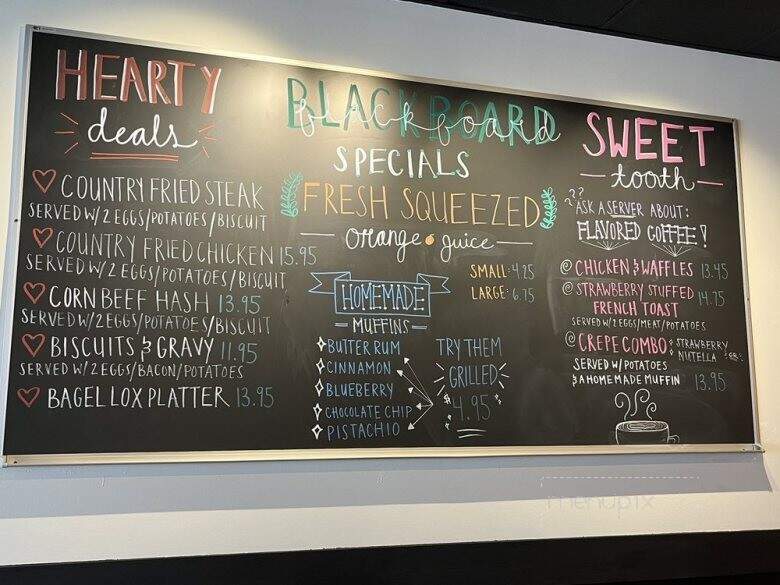 HEARTY
deals
♡ COUNTRY FRIED STEAK
SERVED W/ 2 EGGS/POTATOES/BISCUIT
♡ COUNTRY FRIED CHICKEN 15.95
SERVED W/ 2 EGGS/POTATOES/BISCUIT
♡ CORN BEEF HASH 13.95
SERVED W/ 2 EGGS/POTATOES/BISCUIT
♡ BISCUITS & GRAVY 11.95
SERVED W/ 2 EGGS/BACON/POTATOES
♡ BAGEL LOX PLATTER 13.95
BLACKBOARD
blackboard
SPECIALS
FRESH SQUEEZED
orange juice
SMALL: 4.25
LARGE: 6.75
HOMEMADE
MUFFINS
BUTTER RUM
CINNAMON
BLUEBERRY
CHOCOLATE CHIP
PISTACHIO
TRY THEM
GRILLED
4.95
SWEET
tooth
??? ASK A SERVER ABOUT:
FLAVORED COFFEE!
CHICKEN & WAFFLES 13.45
STRAWBERRY STUFFED 14.75
FRENCH TOAST
SERVED W/ 2 EGGS/MEAT/POTATOES
CREPE COMBO STRAWBERRY
NUTELLA
SERVED W/ POTATOES
& A HOMEMADE MUFFIN 13.95
menupix